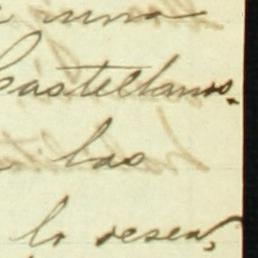 una
Castellanos.
las
lo desea,